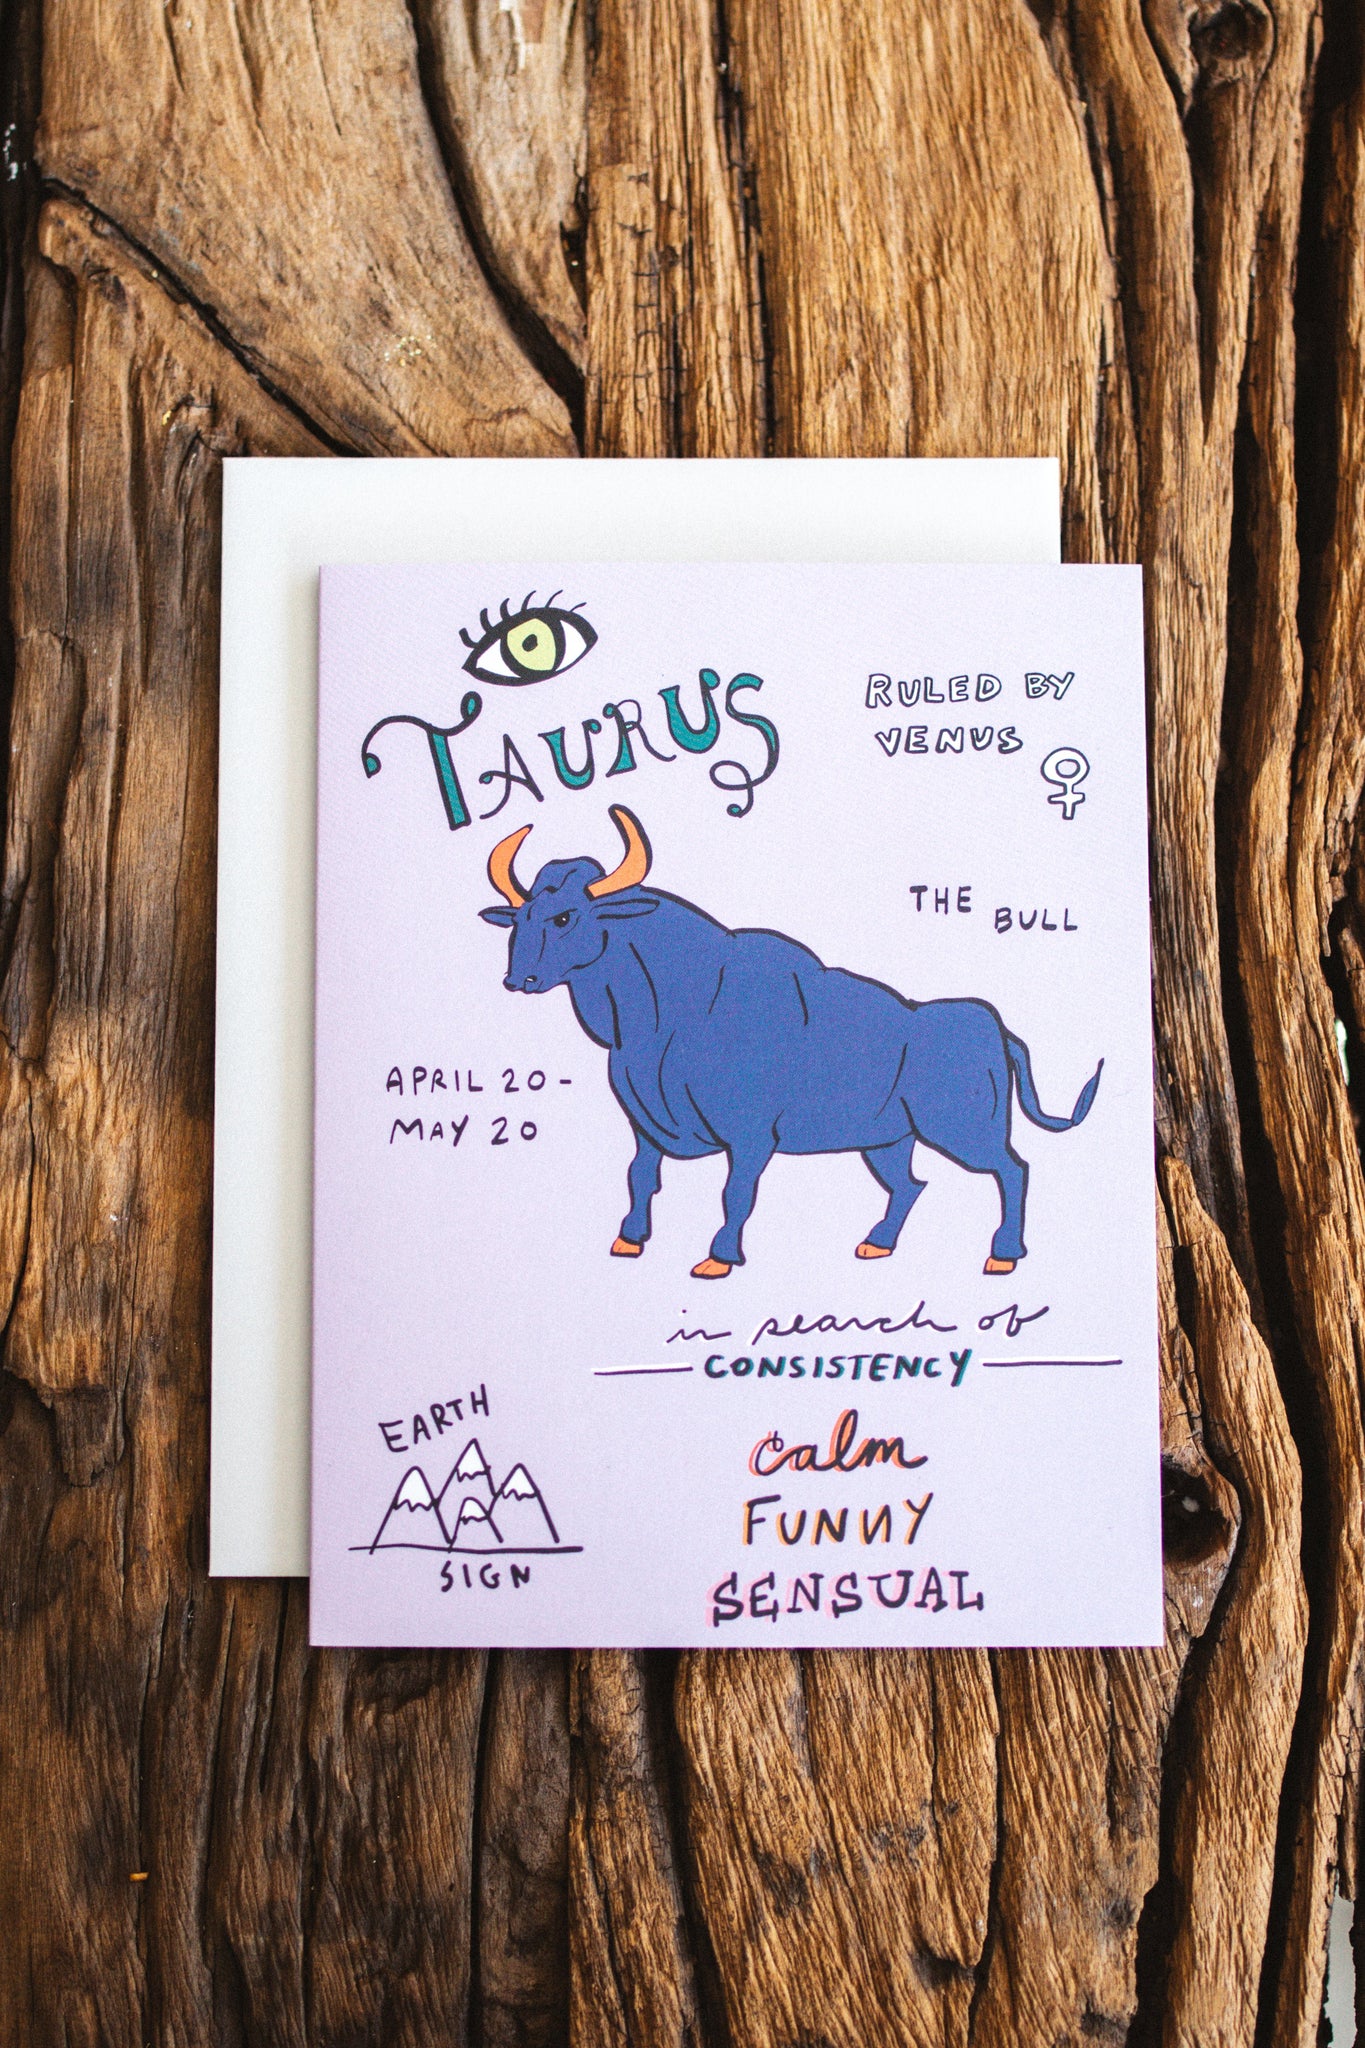 TAURUS
RULED BY
VENUS
THE BULL
APRIL 20-
MAY 20
in search of
CONSISTENCY
calm
FUNNY
SENSUAL
EARTH
SIGN